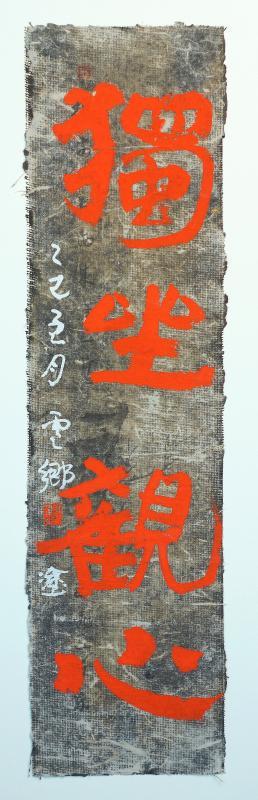 獨坐觀心
乙巳五月 雲鄉 塗